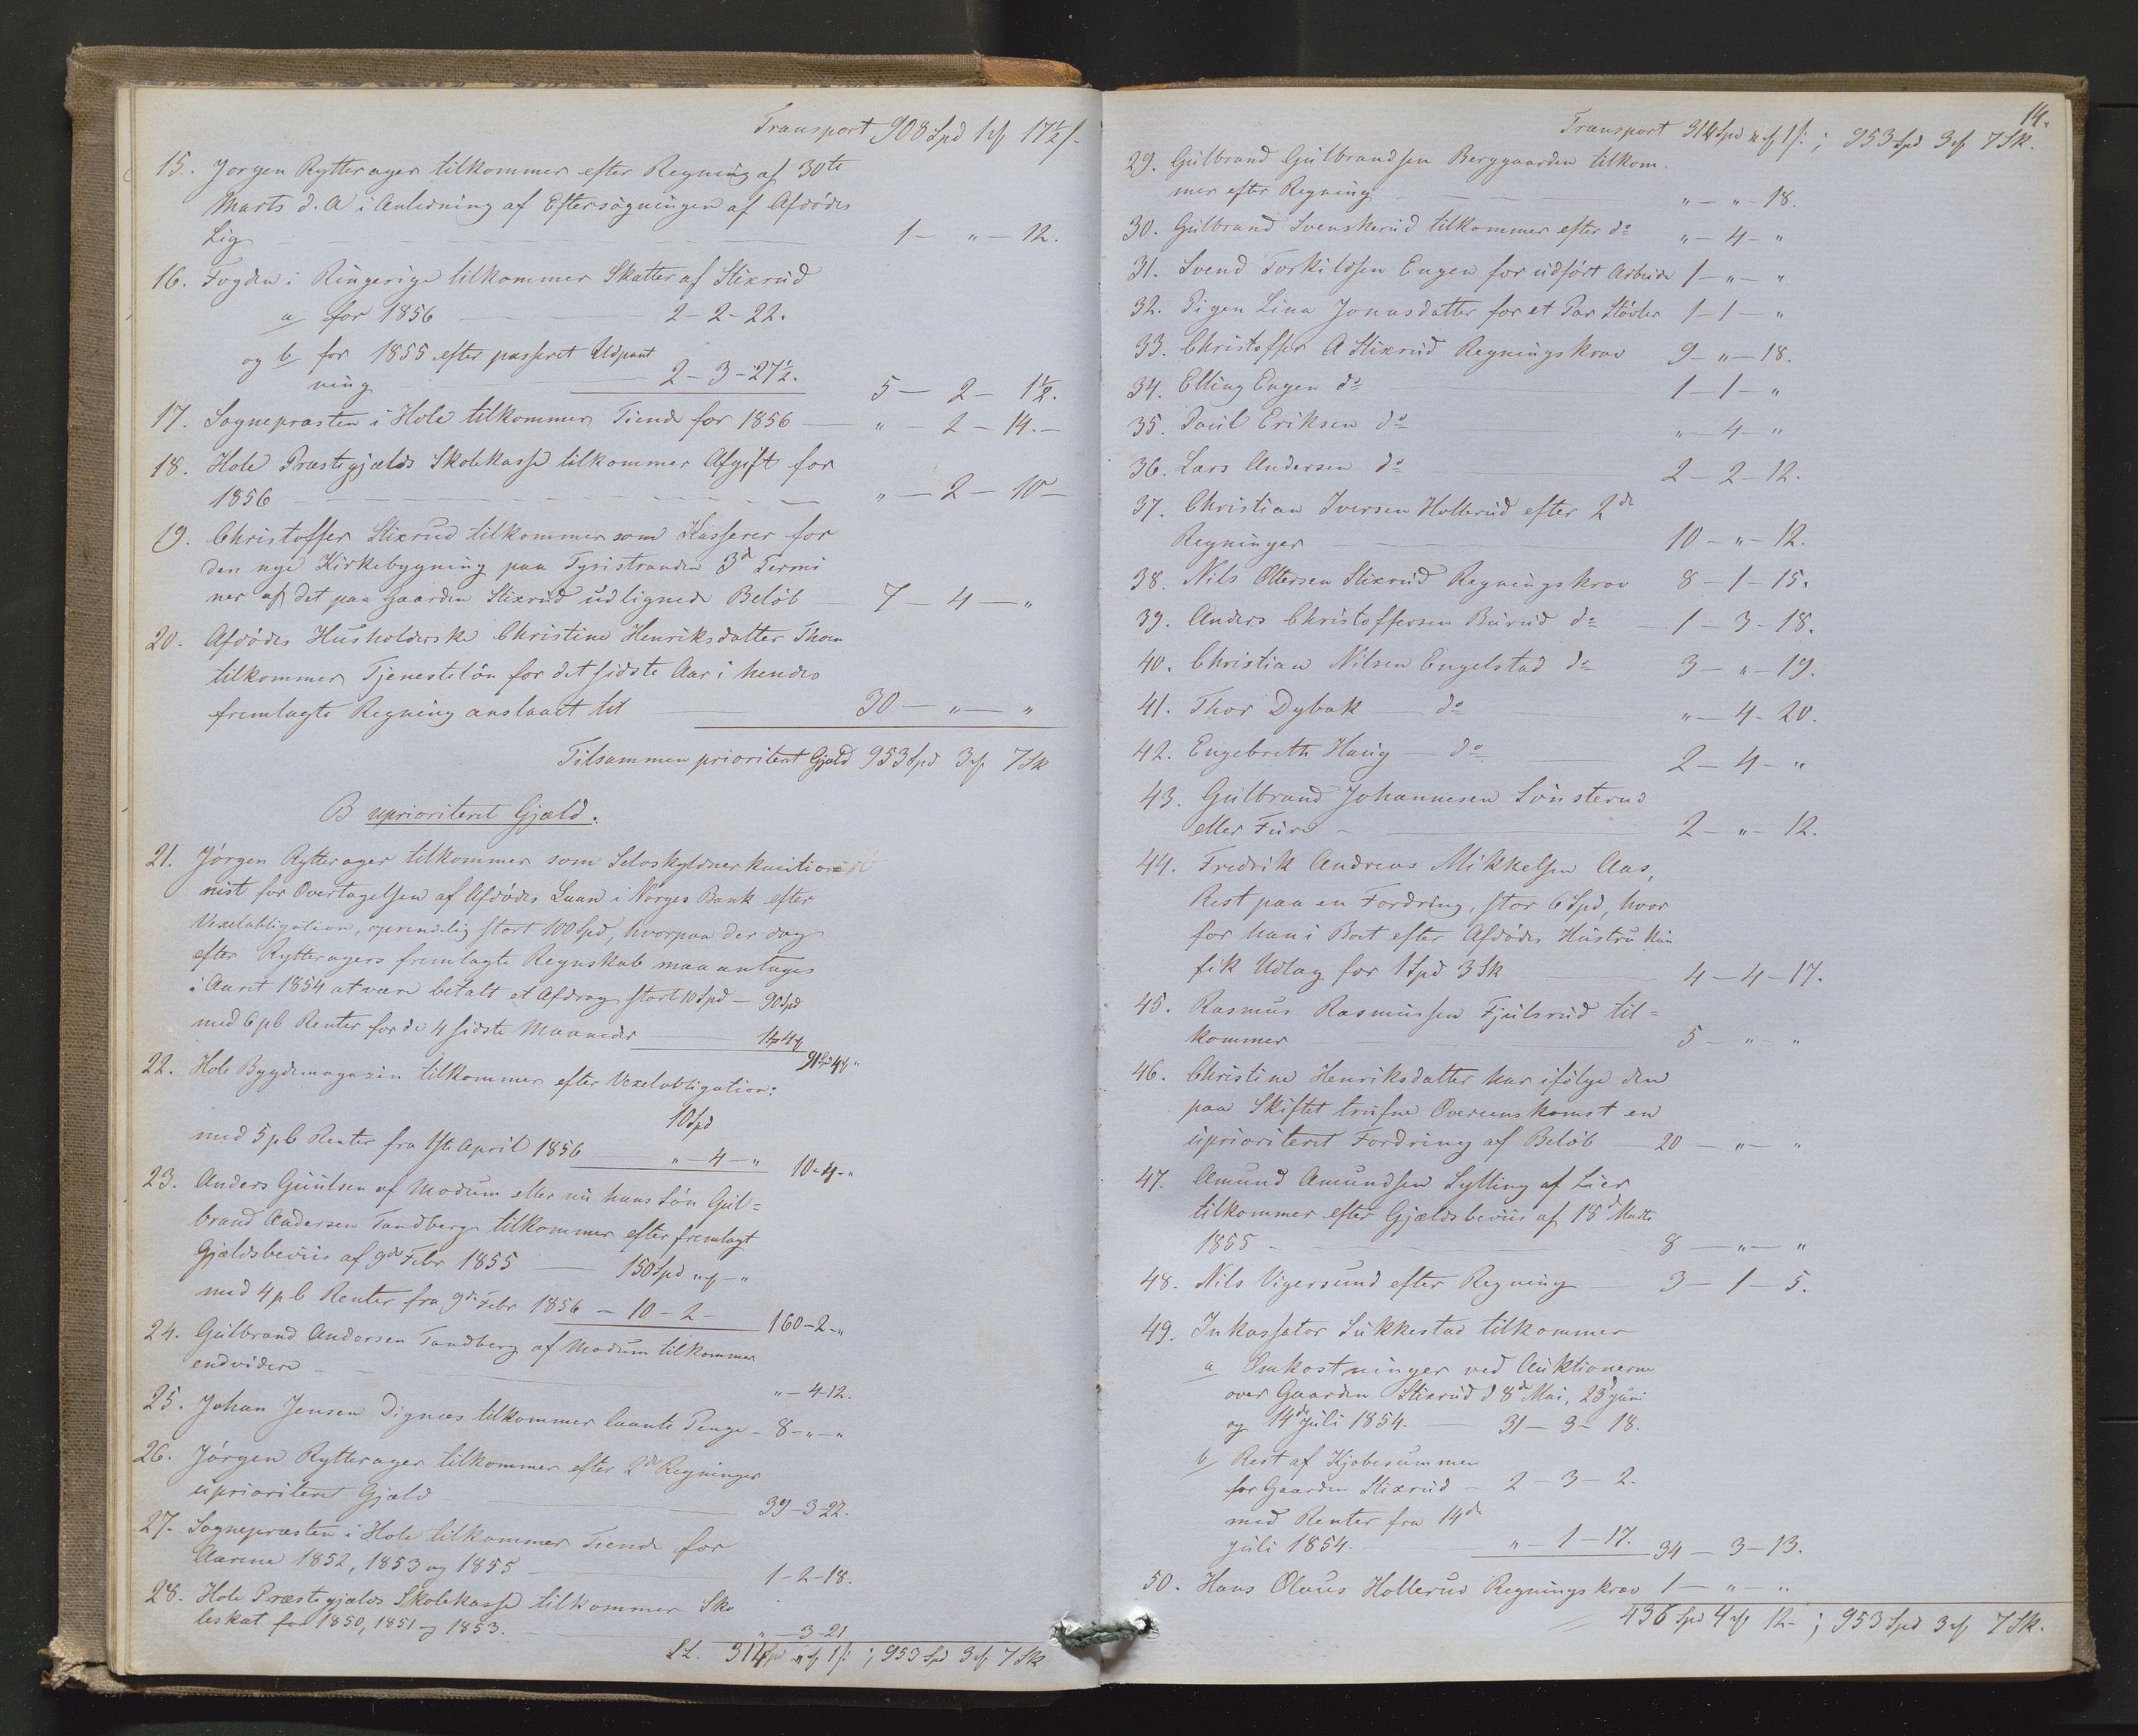 Transport 908 Spd 1 # 17 1/2 s.
15. Jørgen Rytterager tilkommer efter Regning af 30te
Marts d. A i Anledning af Eftersøgningen af Afdødes
Lig 1 - " - 12.
16. Fogden i Ringerige tilkommer Skatter af Stixrud
a/ for 1856 2 - 2 - 22.
og b/ for 1855 efter passeret Udpant
ning 2 - 3 - 27 1/2. 5 - 2 - 1 1/2.
17. Sognepræsten i Hole tilkommer Tiende for 1856 " - 2 - 14. -
18. Hole Præstegjælds Skolekasse tilkommer Afgift for
1856 " - 2 - 10 -
19. Christoffer Stixrud tilkommer som Kasserer for
den nye Kirkebygning paa Tyristranden 3de Termi
ner af det paa Gaarden Stixrud udlignede Beløb 7 - 4 - "
20. Afdødes Husholderske Christine Henriksdatter Thoen
tilkommer Tjenesteløn for det sidste Aar i hendes
fremlagte Regning anslaaet til 30 - " - "
Tilsammen prioritert Gjæld 953 Spd 3 # 7 Sk
B uprioriteret Gjæld.
21. Jørgen Rytterager tilkommer som Selvskyldnerkautio
nist for Overtagelsen af Afdødes Laan i Norges Bank efter
Vexelobligation, oprindelig stort 100 Spd, hvorpaa der dog
efter Rytteragers fremlagte Regnskab maa antages
i Aaret 1854 at være betalt et Afdrag stort 10 Spd - 90 Spd
med 6 pC Renter for de 4 sidste Maaneder 1 # 4 #
91 Spd 4 # "
22. Hole Bygdemagasin tilkommer efter Vexelobligation:
10 Spd
med 5 pC Renter fra 1ste April 1856 " - 4 - " 10 - 4 - "
23. Anders Guulsen af Modum eller nu hans Søn Gul=
brand Andersen Tandberg tilkommer efter fremlagt
Gjældsbeviis af 9de Febr 1855 150 Spd " # - "
med 4 pC Renter fra 9de Febr 1856 - 10 - 2 - 160 - 2 - "
24. Gulbrand Andersen Tandberg af Modum tilkommer
endvidere " - 4 - 12.
25. Johan Jensen Dignæs tilkommer laante Penge - 8 - " - "
26. Jørgen Rytterager tilkommer efter 2de Regninger
uprioriteret Gjæld 39 - 3 - 22.
27. Sognepræsten i Hole tilkommer Tiende for
Aarene 1852, 1853 og 1855 1 - 2 - 18.
28. Hole Præstegjælds Skolekasse tilkommer Sko
leskat for 1850, 1851 og 1853. " - 3 - 21
Lt. 314 Spd " # 1 s: ; 953 Spd 3 # 7 Sk
14.
Transport 314 Spd " # 1 s: ; 953 Spd 3 # 7 Sk.
29. Gulbrand Gulbrandsen Berggaarden tilkom-
mer efter Regning " - " - 18.
30. Gulbrand Svenskerud tilkommer efter do " - 4 - "
31. Svend Torkildsen Engen for udført Arbeide 1 - " - "
32. Pigen Lina Jonasdatter for et Par Støvler 1 - 1 - "
33. Christoffer A Stixrud Regningskrav 9 - " - 18.
34. Elling Engen do 1 - 1 - "
35. Paul Eriksen do " - 4 - "
36. Lars Andersen do 2 - 2 - 12.
37. Christian Iversen Hollerud efter 2de
Regninger 10 - " - 12.
38. Nils Ottersen Stixrud Regningskrav 8 - 1 - 15.
39. Anders Christoffersen Burud do 1 - 3 - 18.
40. Christian Nilsen Engelstad do 3 - " - 19.
41. Thor Dybak do " - 4 - 20.
42. Engebreth Haug do 2 - 4 - "
43. Gulbrand Johannesen Sønsterud
eller Fure 2 - " - 12.
44. Fredrik Andreas Mikkelsen Aas,
Rest paa en Fordring, stor 6 Spd, hvor
for han i Boet efter Afdødes Hustru kun
fik Udlæg for 1 Spd 3 Sk 4 - 4 - 17.
45. Rasmus Rasmussen Fjulsrud til=
kommer 5 - " - "
46. Christine Henriksdatter har ifølge den
paa Skiftet trufne Overeenskomst en
uprioriteret Fordring af Beløb 20 - " - "
47. Amund Amundsen Sylling af Lier
tilkommer efter Gjældsbeviis af 18de Marts
1855 - 8 - " - "
48. Nils Vigersund efter Regning 3 - 1 - 5.
49. Inkassator Sukkestad tilkommer
a Omkostninger ved Auktionerne
over Gaarden Stixrud d 8de Mai, 23de Juni
og 14de Juli 1854. 31 - 3 - 18.
b/ Rest af Kjøbesummen
for Gaarden Stixrud - 2 - 3 - 2.
med Renter fra 14de
Juli 1854. " - 1 - 17. 34 - 3 - 13.
50. Hans Olaus Hollerud Regningskrav 1 - " - "
436 Spd 4 # 12 - ; 953 Spd 3 # 7 Sk.